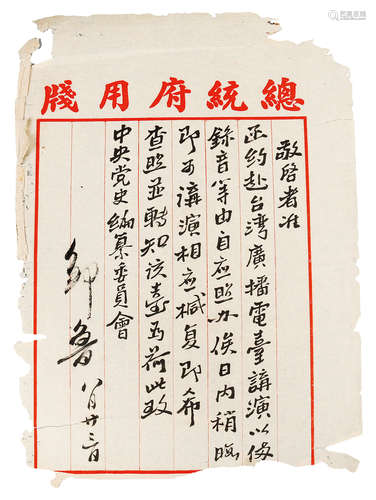 總統府用牋
敬啓者准
函约赴台湾廣播電臺講演以備
錄音等由自應照办俟日内稍暇
即可講演相應椷复即希
查照並轉知该臺為荷此致
中央党史编纂委員會
邹魯 八月廿三日